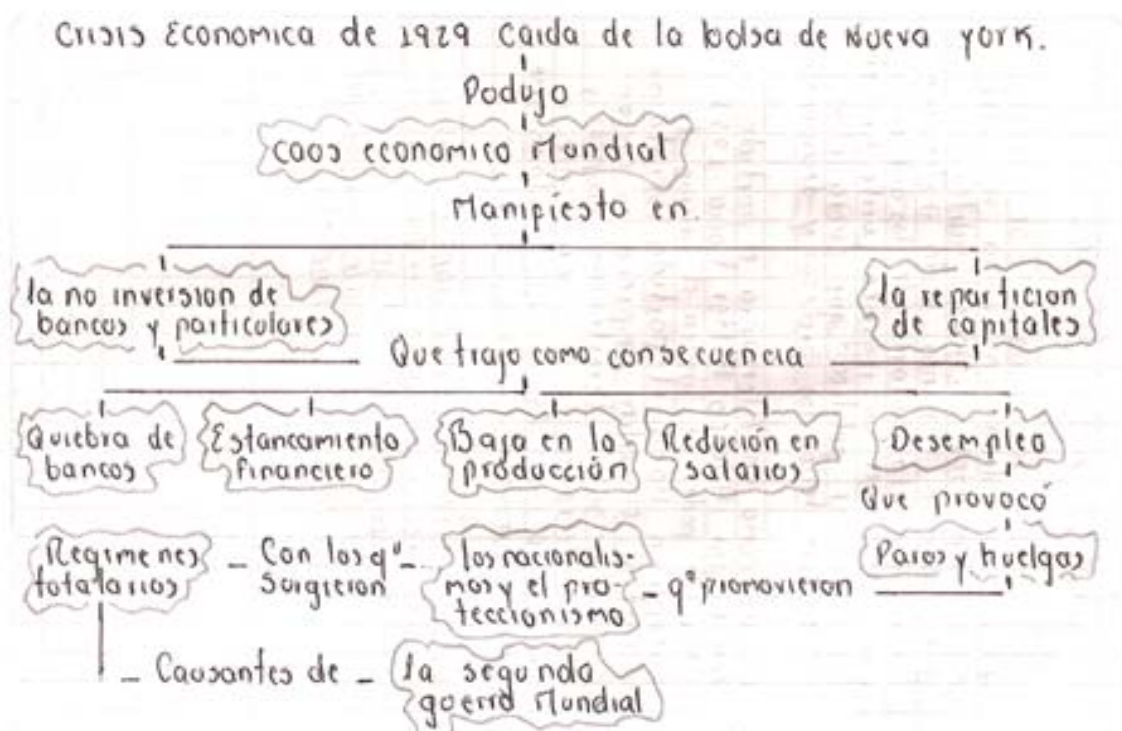 Crisis Economica de 1929 Caida de la bolsa de Nueva York.
Podujo
caos economico Mundial
Manifiesto en.
la no inversion de
bancos y particulares
la reparticion
de capitales
Que trajo como consecuencia
Quiebra de
bancos
Estancamiento
financiero
Baja en la
producción
Redución en
salarios
Desempleo
Que provocó
Regimenes
totalarios
Con los qº
surgieron
los nacionalis-
mos y el pro-
teccionismo
qº promovieron
Paros y huelgas
Causantes de
la segunda
guerra Mundial